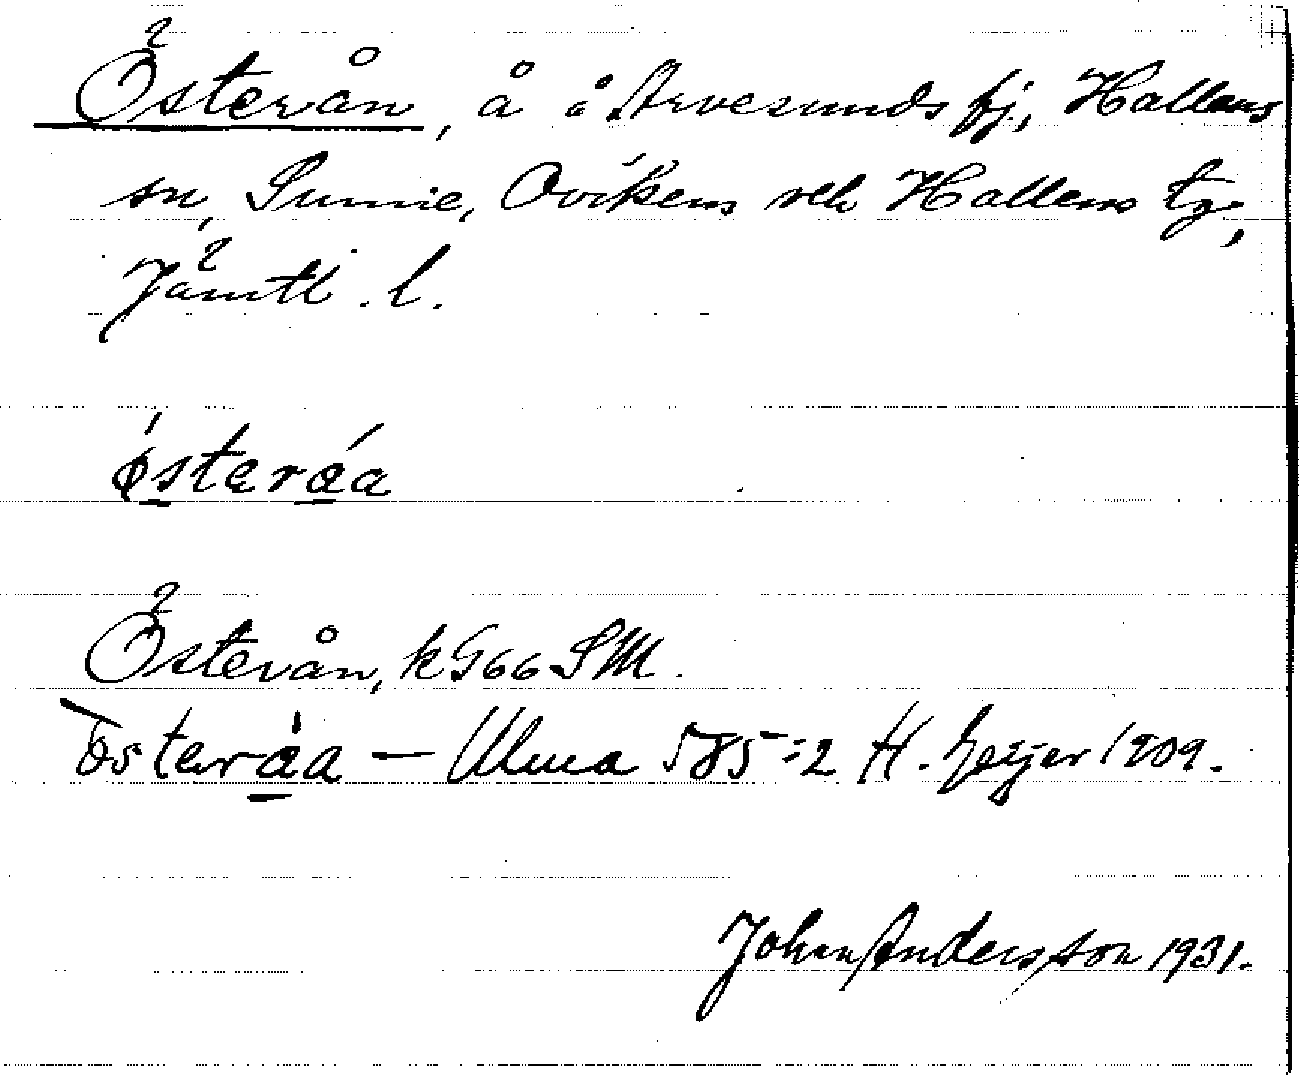 Österån, å å Arvesunds fj., Hallens
sn, Sunne, Ovikens och Hallens tg,
Jämtl. l.
østaráa
Österån, k G66 SM.
östaráa — Ulma 585:2 H. Geijer 1909.
Johan Andersson 1931.